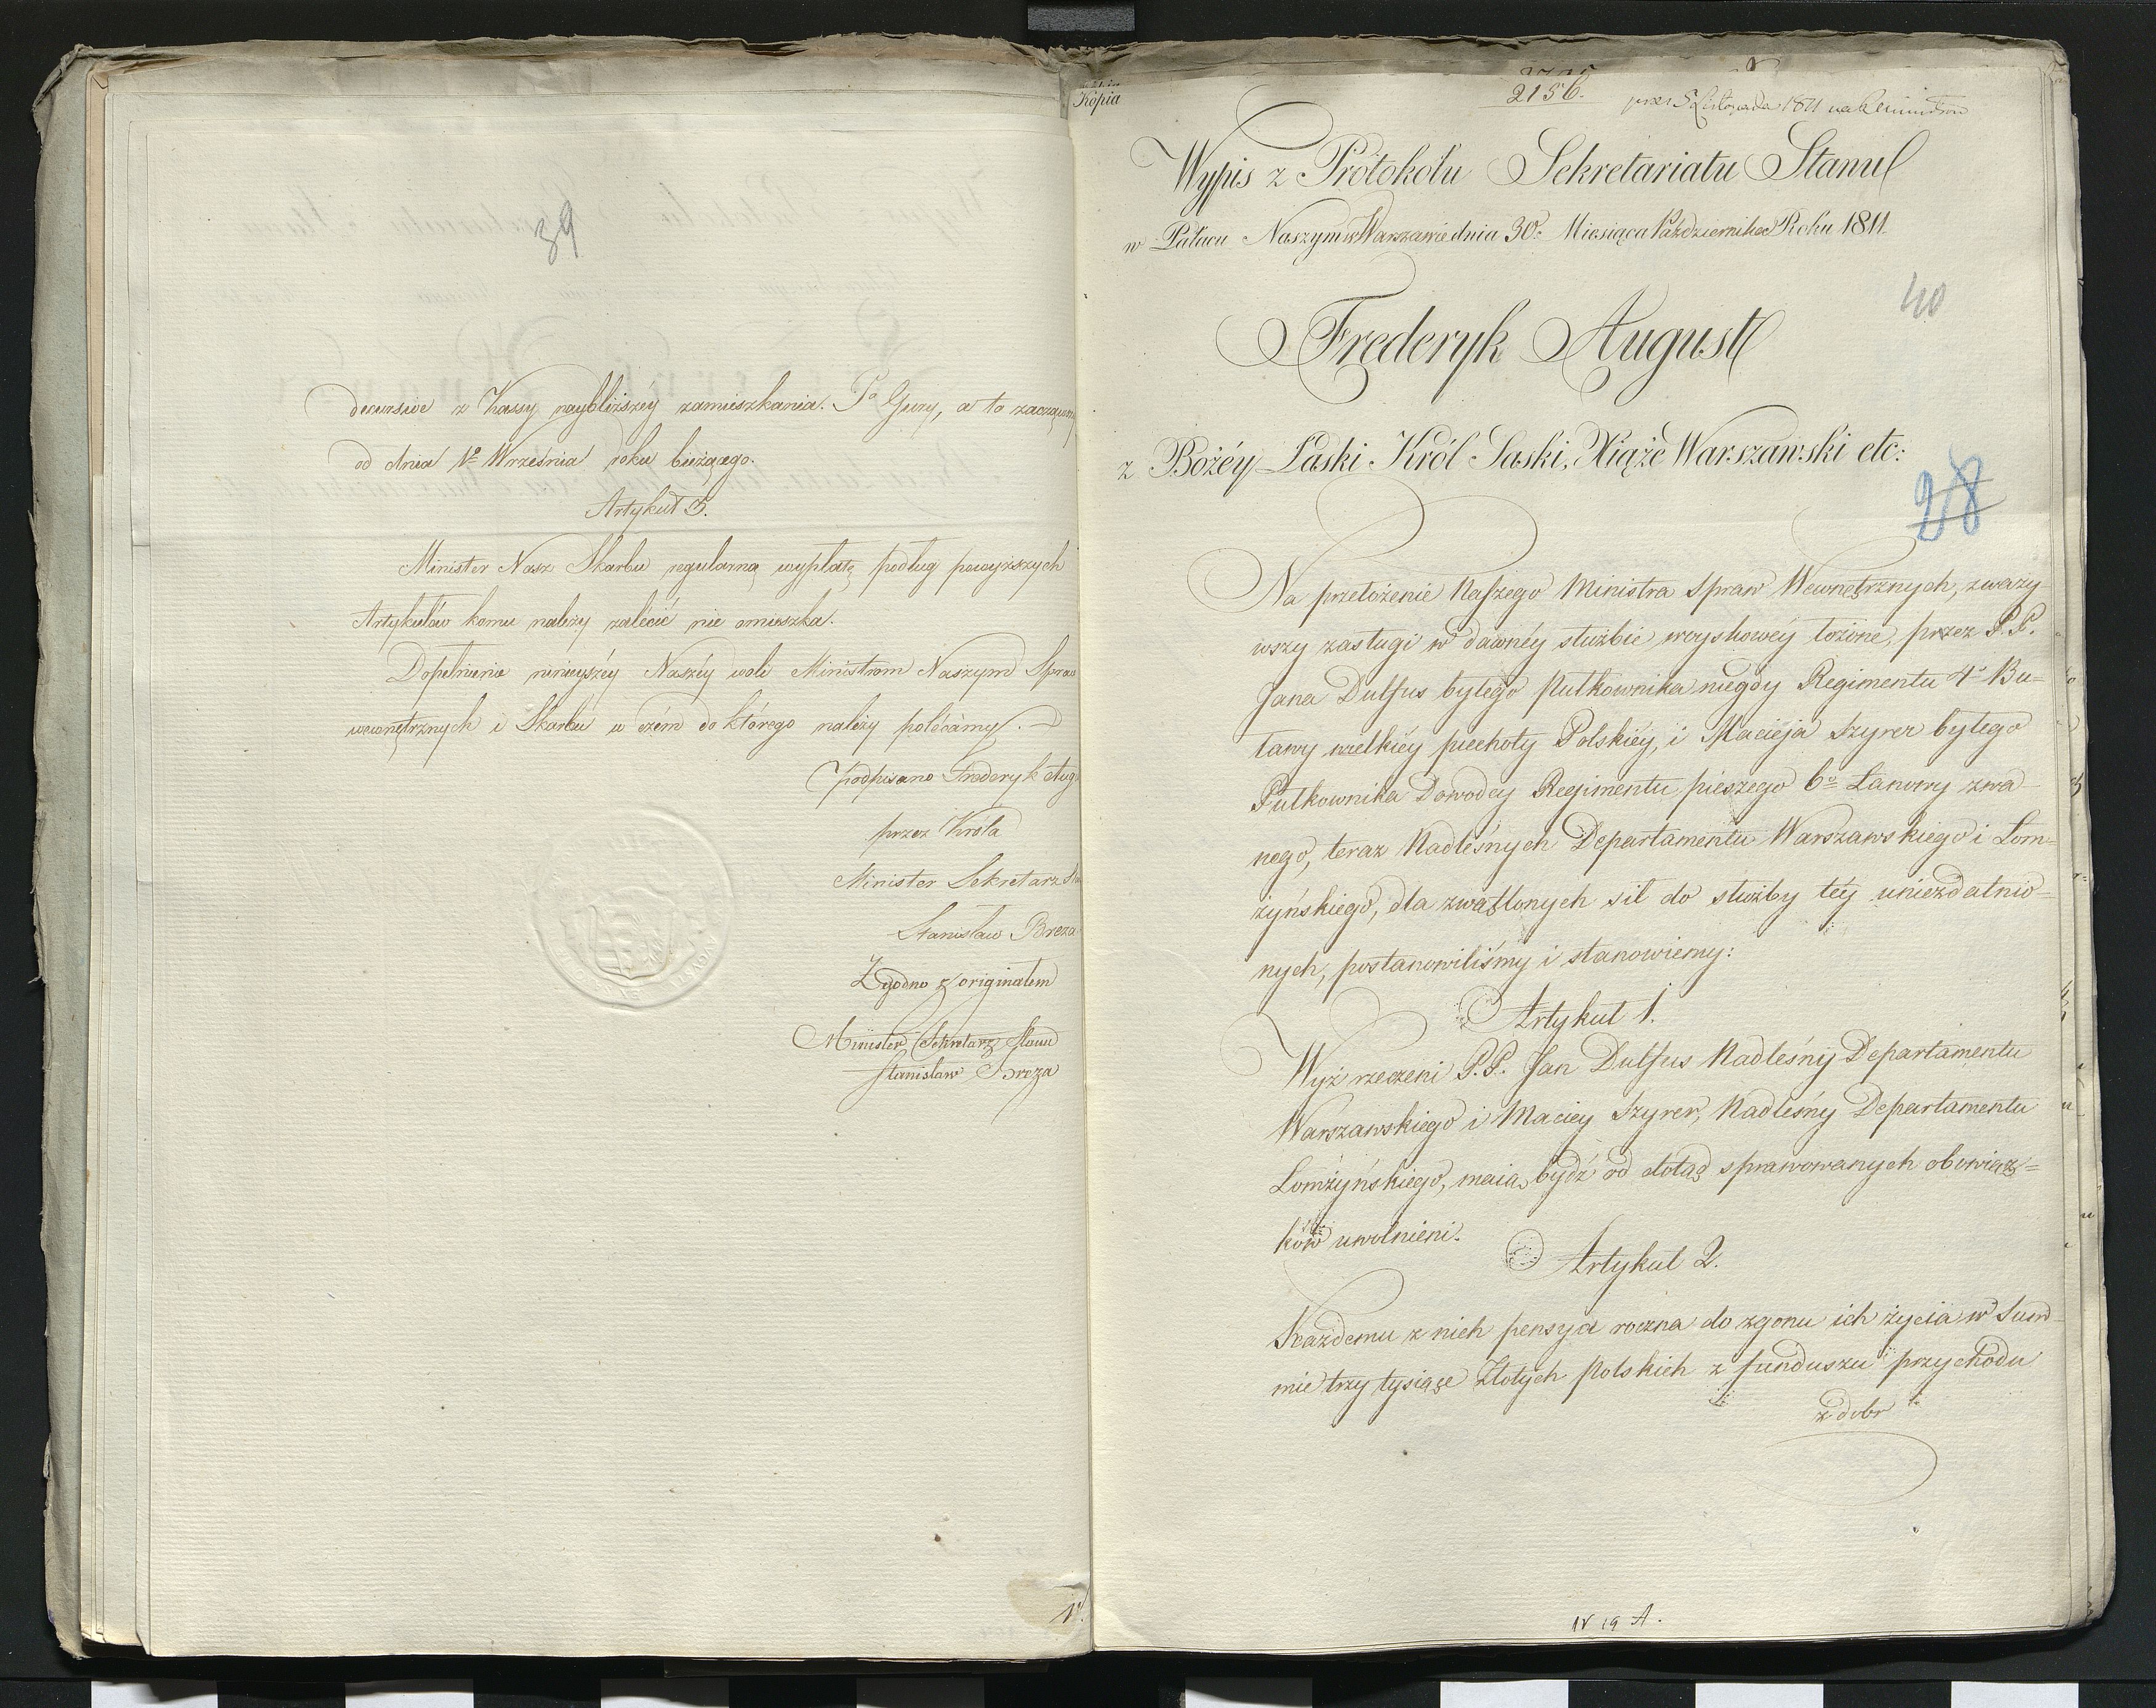 39
decursive z Kassy naybliższéy zamieszkania. Po Gury, a to zacząwszy
od dnia 1o Września roku bieżącego.
Artykuł 3.
Minister Nasz Skarbu regularną wypłatę podług powyższych
Artykułów komu należy zalecić nie omieszka.
Dopełnienie ninieyszéy Naszéy woli Ministrom Naszym Spraw
wewnętrznych i Skarbu w czém do którego należy polécamy.
podpisano Frederyk Aug
przez Króla
Minister Sekretarz
Stanisław Breza
Zgodno z originałem
Minister Sekretarz Stanu
Stanisław Breza
Kopia
2156.
5 Listopada 1811
Wypis z Protokołu Sekretariatu Stanu
w Pałacu Naszym w Warszawie dnia 30. Miesiąca Października Roku 1811.
40
Frederyk August
z Bożéy Łaski Król Saski, Xiąże Warszawski etc:
28
Na przełożenie Naszego Ministra Spraw Wewnętrznych, zważy-
wszy zasługi w dawnéy służbie woyskowéy łożone, przez P.P.
Jana Dulfus byłego Pułkownika niegdy Regimentu 4o Bu=
ławy wielkiéy piechoty Polskiéy, i Macieja Szyrer byłego
Pułkownika Dowodcy Regimentu pieszego 6o Łanowy zwa-
nego, teraz Nadleśnych Departamentu Warszawskiego i Łom=
żyńskiego, dla zwątlonych sił do służby téy uniezdatnio=
nych, postanowiliśmy i stanowiemy:
Artykuł 1.
Wyż rzeczeni P.P. Jan Dulfus Nadleśny Departamentu
Warszawskiego i Maciey Szyrer, Nadleśny Departamentu
Łomżyńskiego, maią bydź od dotąd sprawowanych obowiąz=
ków uwolnieni.
Artykuł 2.
Każdemu z nich pensya roczna do zgonu ich życia w Sum-
mie trzy tysiące Złotych Polskich z funduszu przychodu
z dobr
N 19 A.